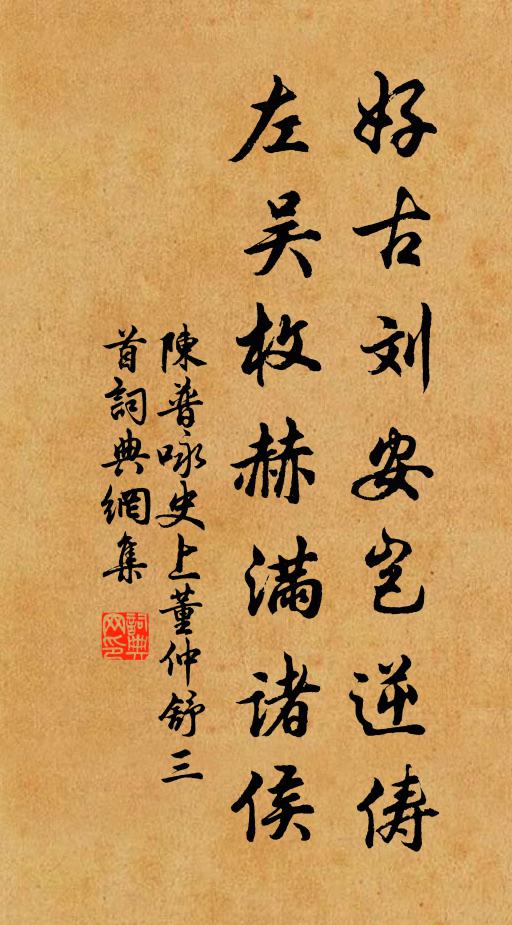 好古刘安岂逆俦
左吴枚赫满诸侯
陳普咏史上董仲舒三
首詞典網集
詞典网印